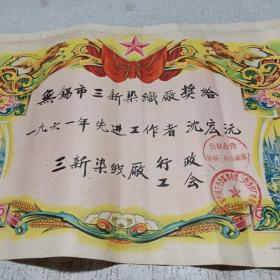 無錫市三新染織廠獎給
一九六一年先进工作者 沈宏沅
三新染织廠 行政
工会
公私合营